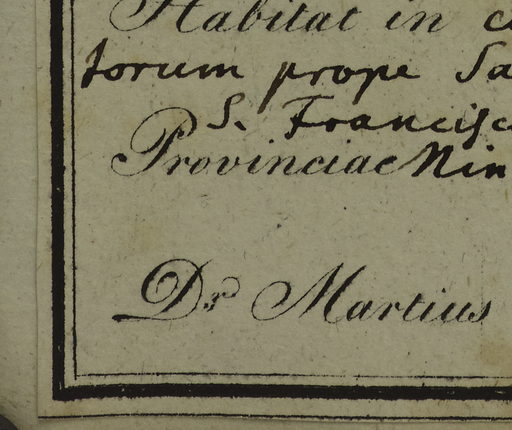 Habitat in
torum prope
S. Francisc
Provinciae Min
Dr. Martius